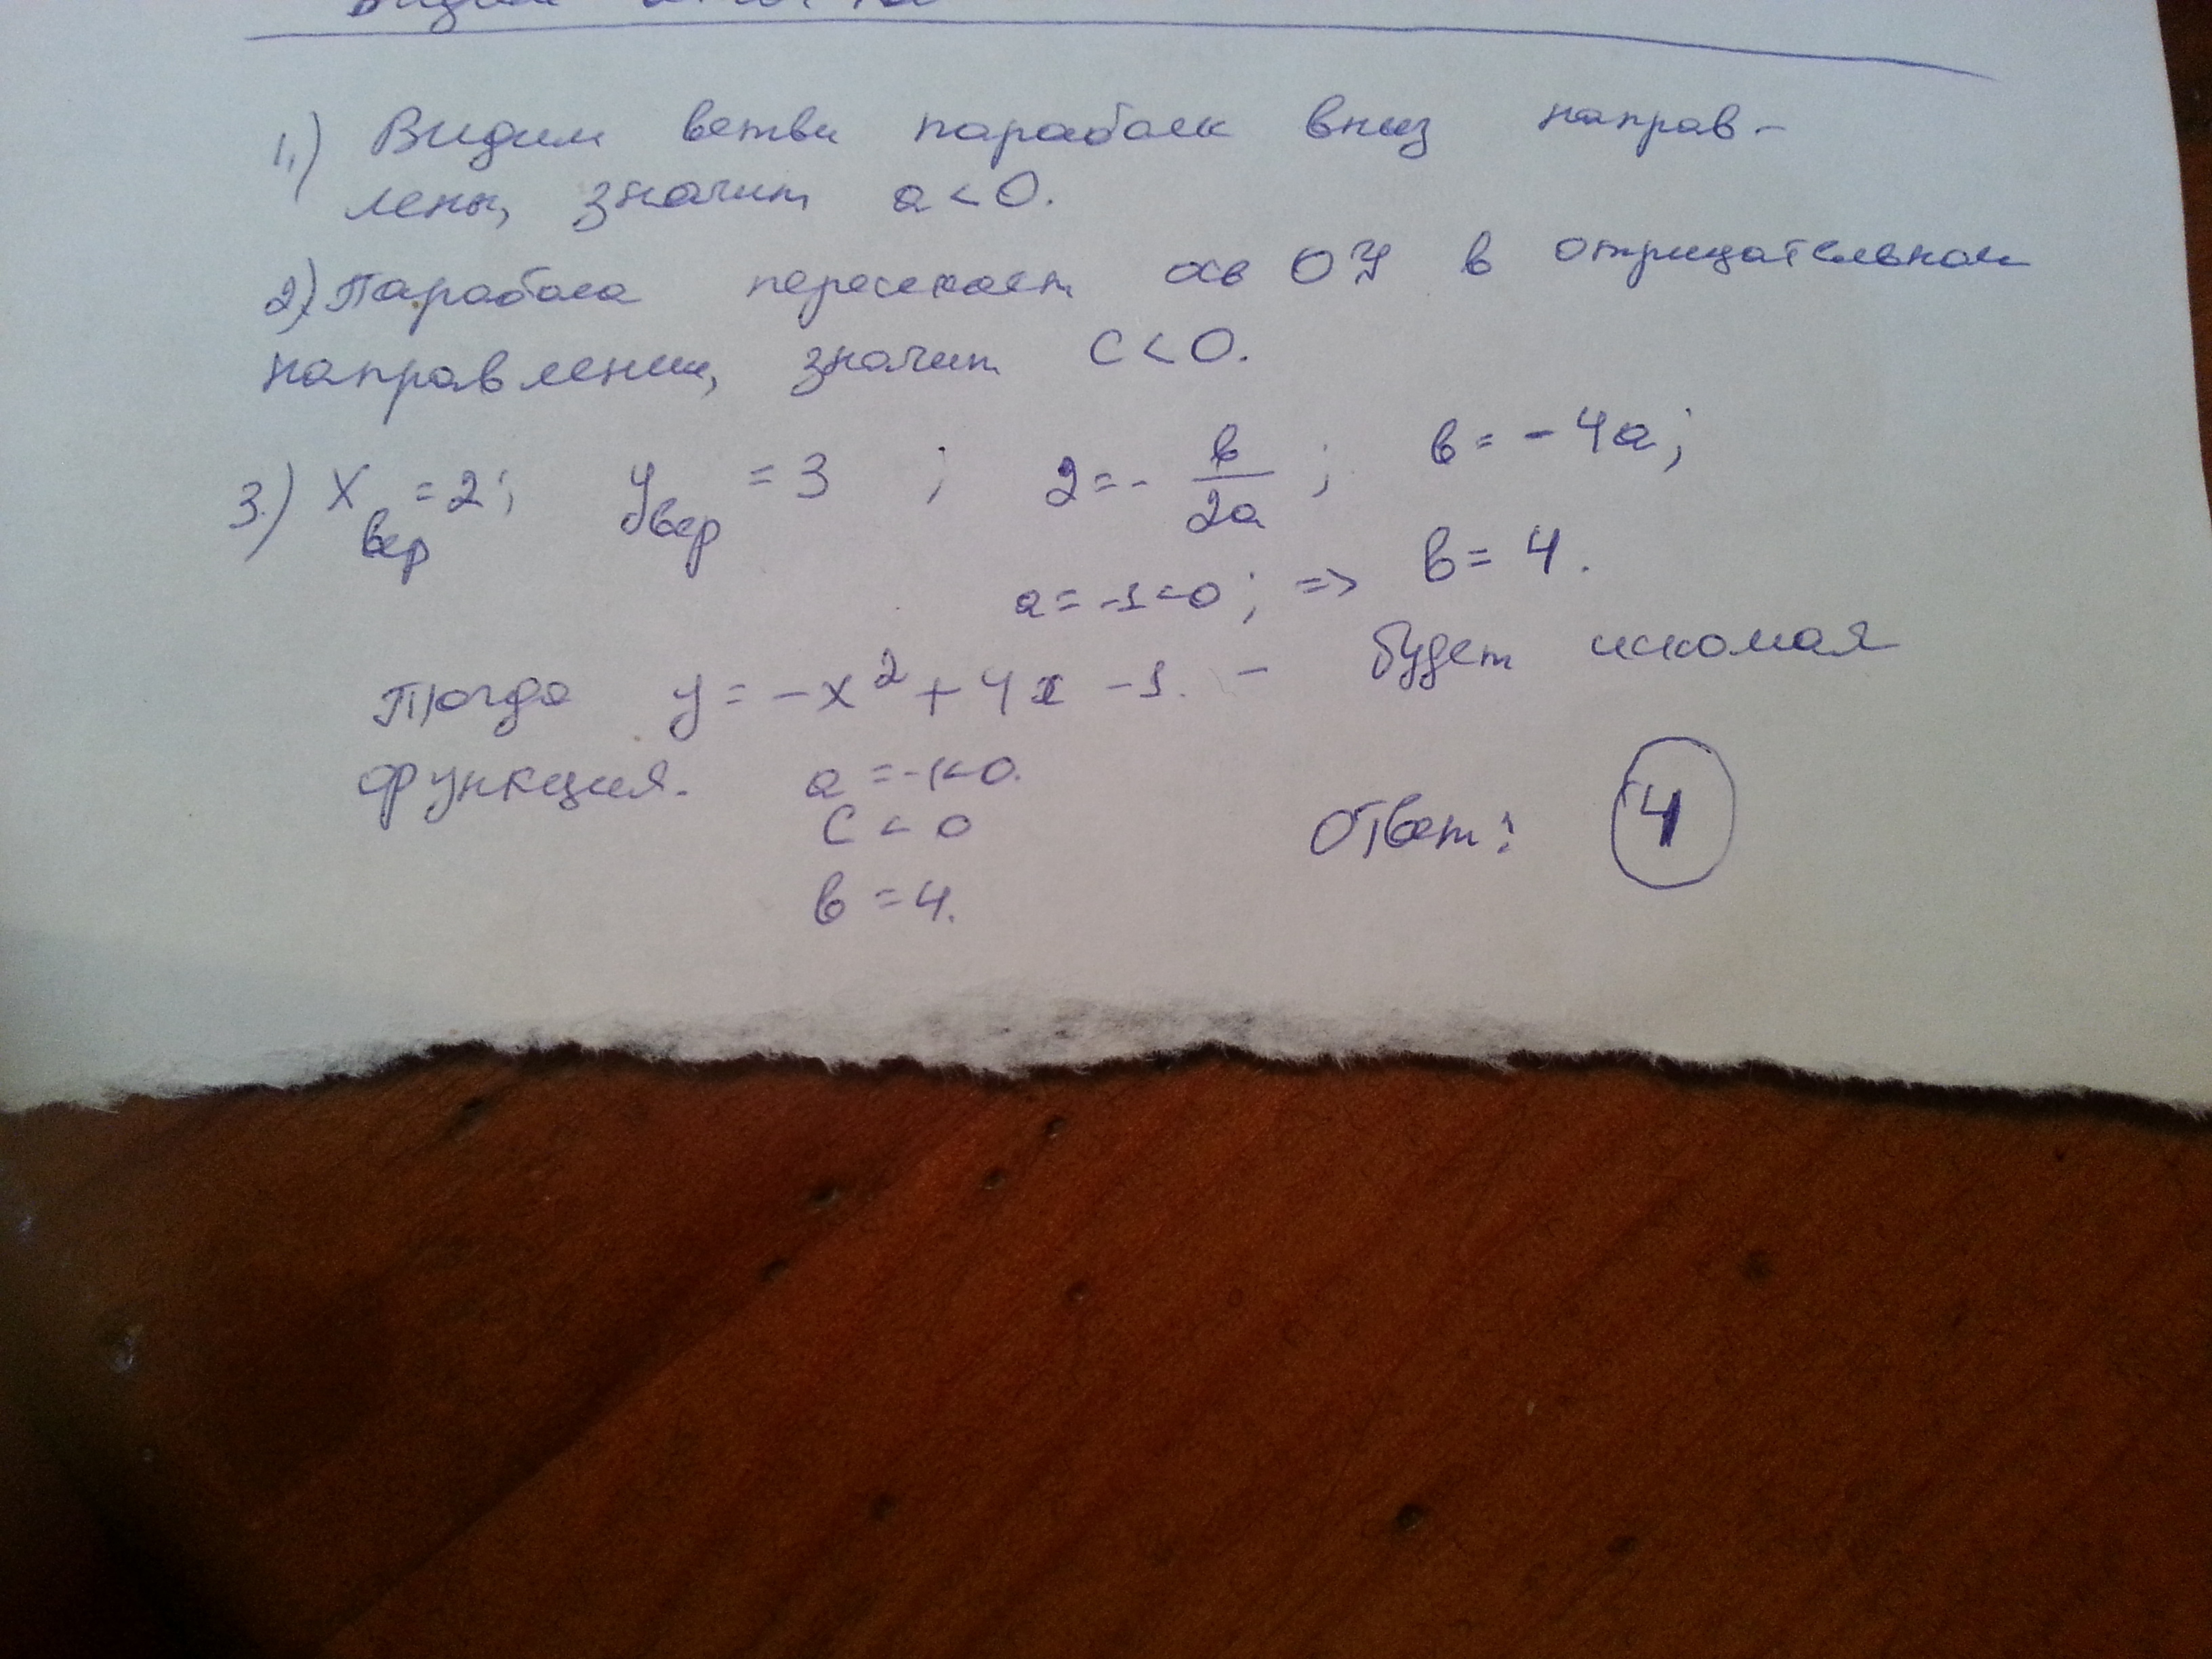 1.) Видим ветви парабол вниз направ-
лены, значит a < 0.
2) Парабола пересекает ось OY в отрицательном
направлении, значит C < 0.
3.) X вер = 2; y вер = 3 ; 2 = - в/2a ; в = - 4a;
a = -1 < 0; => в = 4.
Тогда y = -x² + 4x - 1. - будет искомая
функция. a = -1 < 0.
C < 0
в = 4.
Ответ: 4